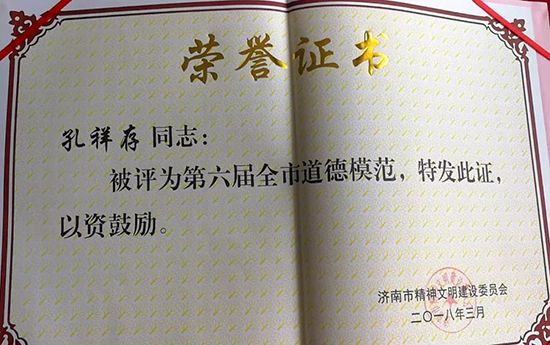 荣誉证书
孔祥存 同志：
被评为第六届全市道德模范，特发此证，
以资鼓励。
济南市精神文明建设委员会
二〇一八年三月